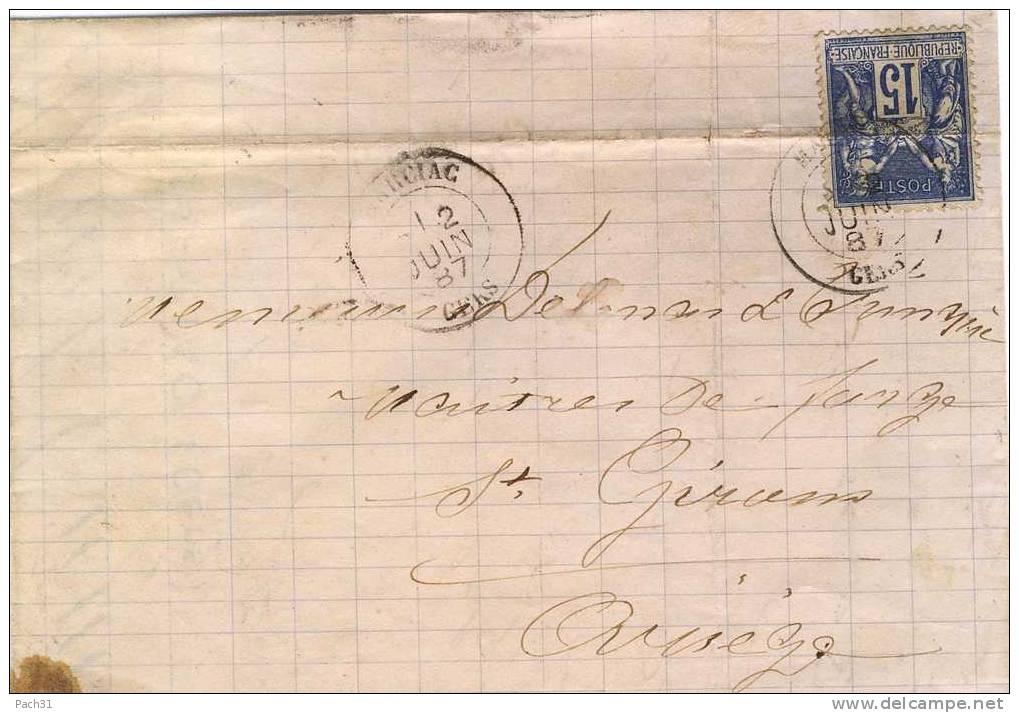 REPUBLIQUE FRANÇAISE
15
POSTE
RCIAC
12
JUIN
87
GERS
JUIN
87
GERS
Messieurs
maitres de forge
St. Girons
Ariège
Pach31
delcampe.net